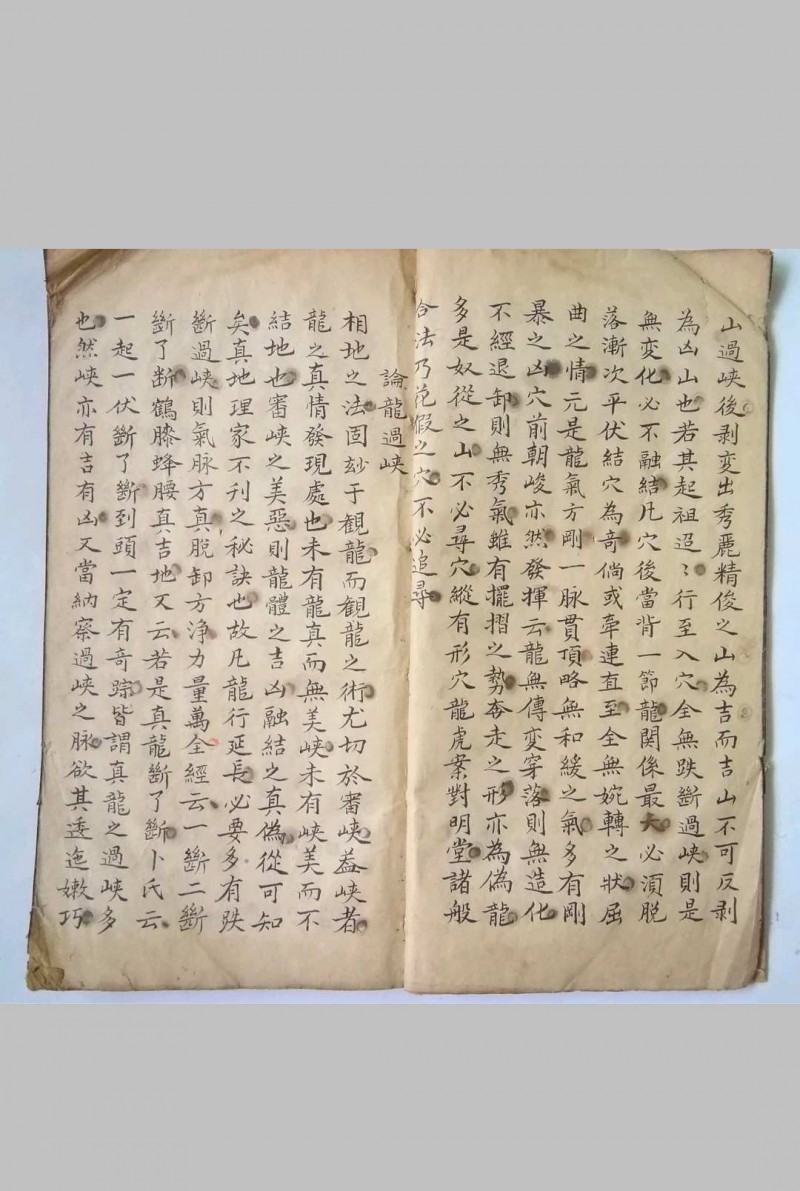 山過峽後剥变出秀麗精俊之山為吉而吉山不可反剥
為凶山也若其起祖迢〻行至入穴全無跌斷過峽則是
無变化必不融結凡穴後當背一節龍関係最大必須脱
落漸次平伏結穴為奇倘或牽連直至全無婉轉之狀屈
曲之情元是龍氣方剛一脉貫頂略無和緩之氣多有剛
暴之凶穴前朝峻亦然發揮云龍無傳变穿落則無造化
不經退卸則無秀氣雖有擺摺之勢奔走之形亦為偽龍
多是奴從之山不必尋穴縱有形穴龍虎案對明堂諸般
合法乃花假之穴不必追尋
論龍過峽
相地之法固玅于観龍而観龍之術尤切於審峽葢峽者
龍之真情發現處也未有龍真而無美峽未有峽美而不
結地也審峽之美惡則龍體之吉凶融結之真偽從可知
矣真地理家不刋之秘訣也故凡龍行延長必要多有跌
斷過峽則氣脉方真脱卸方淨力量萬全經云一斷二斷
斷了断鶴膝蜂腰真吉地又云若是真龍斷了斷卜氏云
一起一伏斷了斷到頭一定有奇踪皆謂真龍之過峽多
也然峽亦有吉有凶又當納察過峽之脉欲其逶迤嫩巧